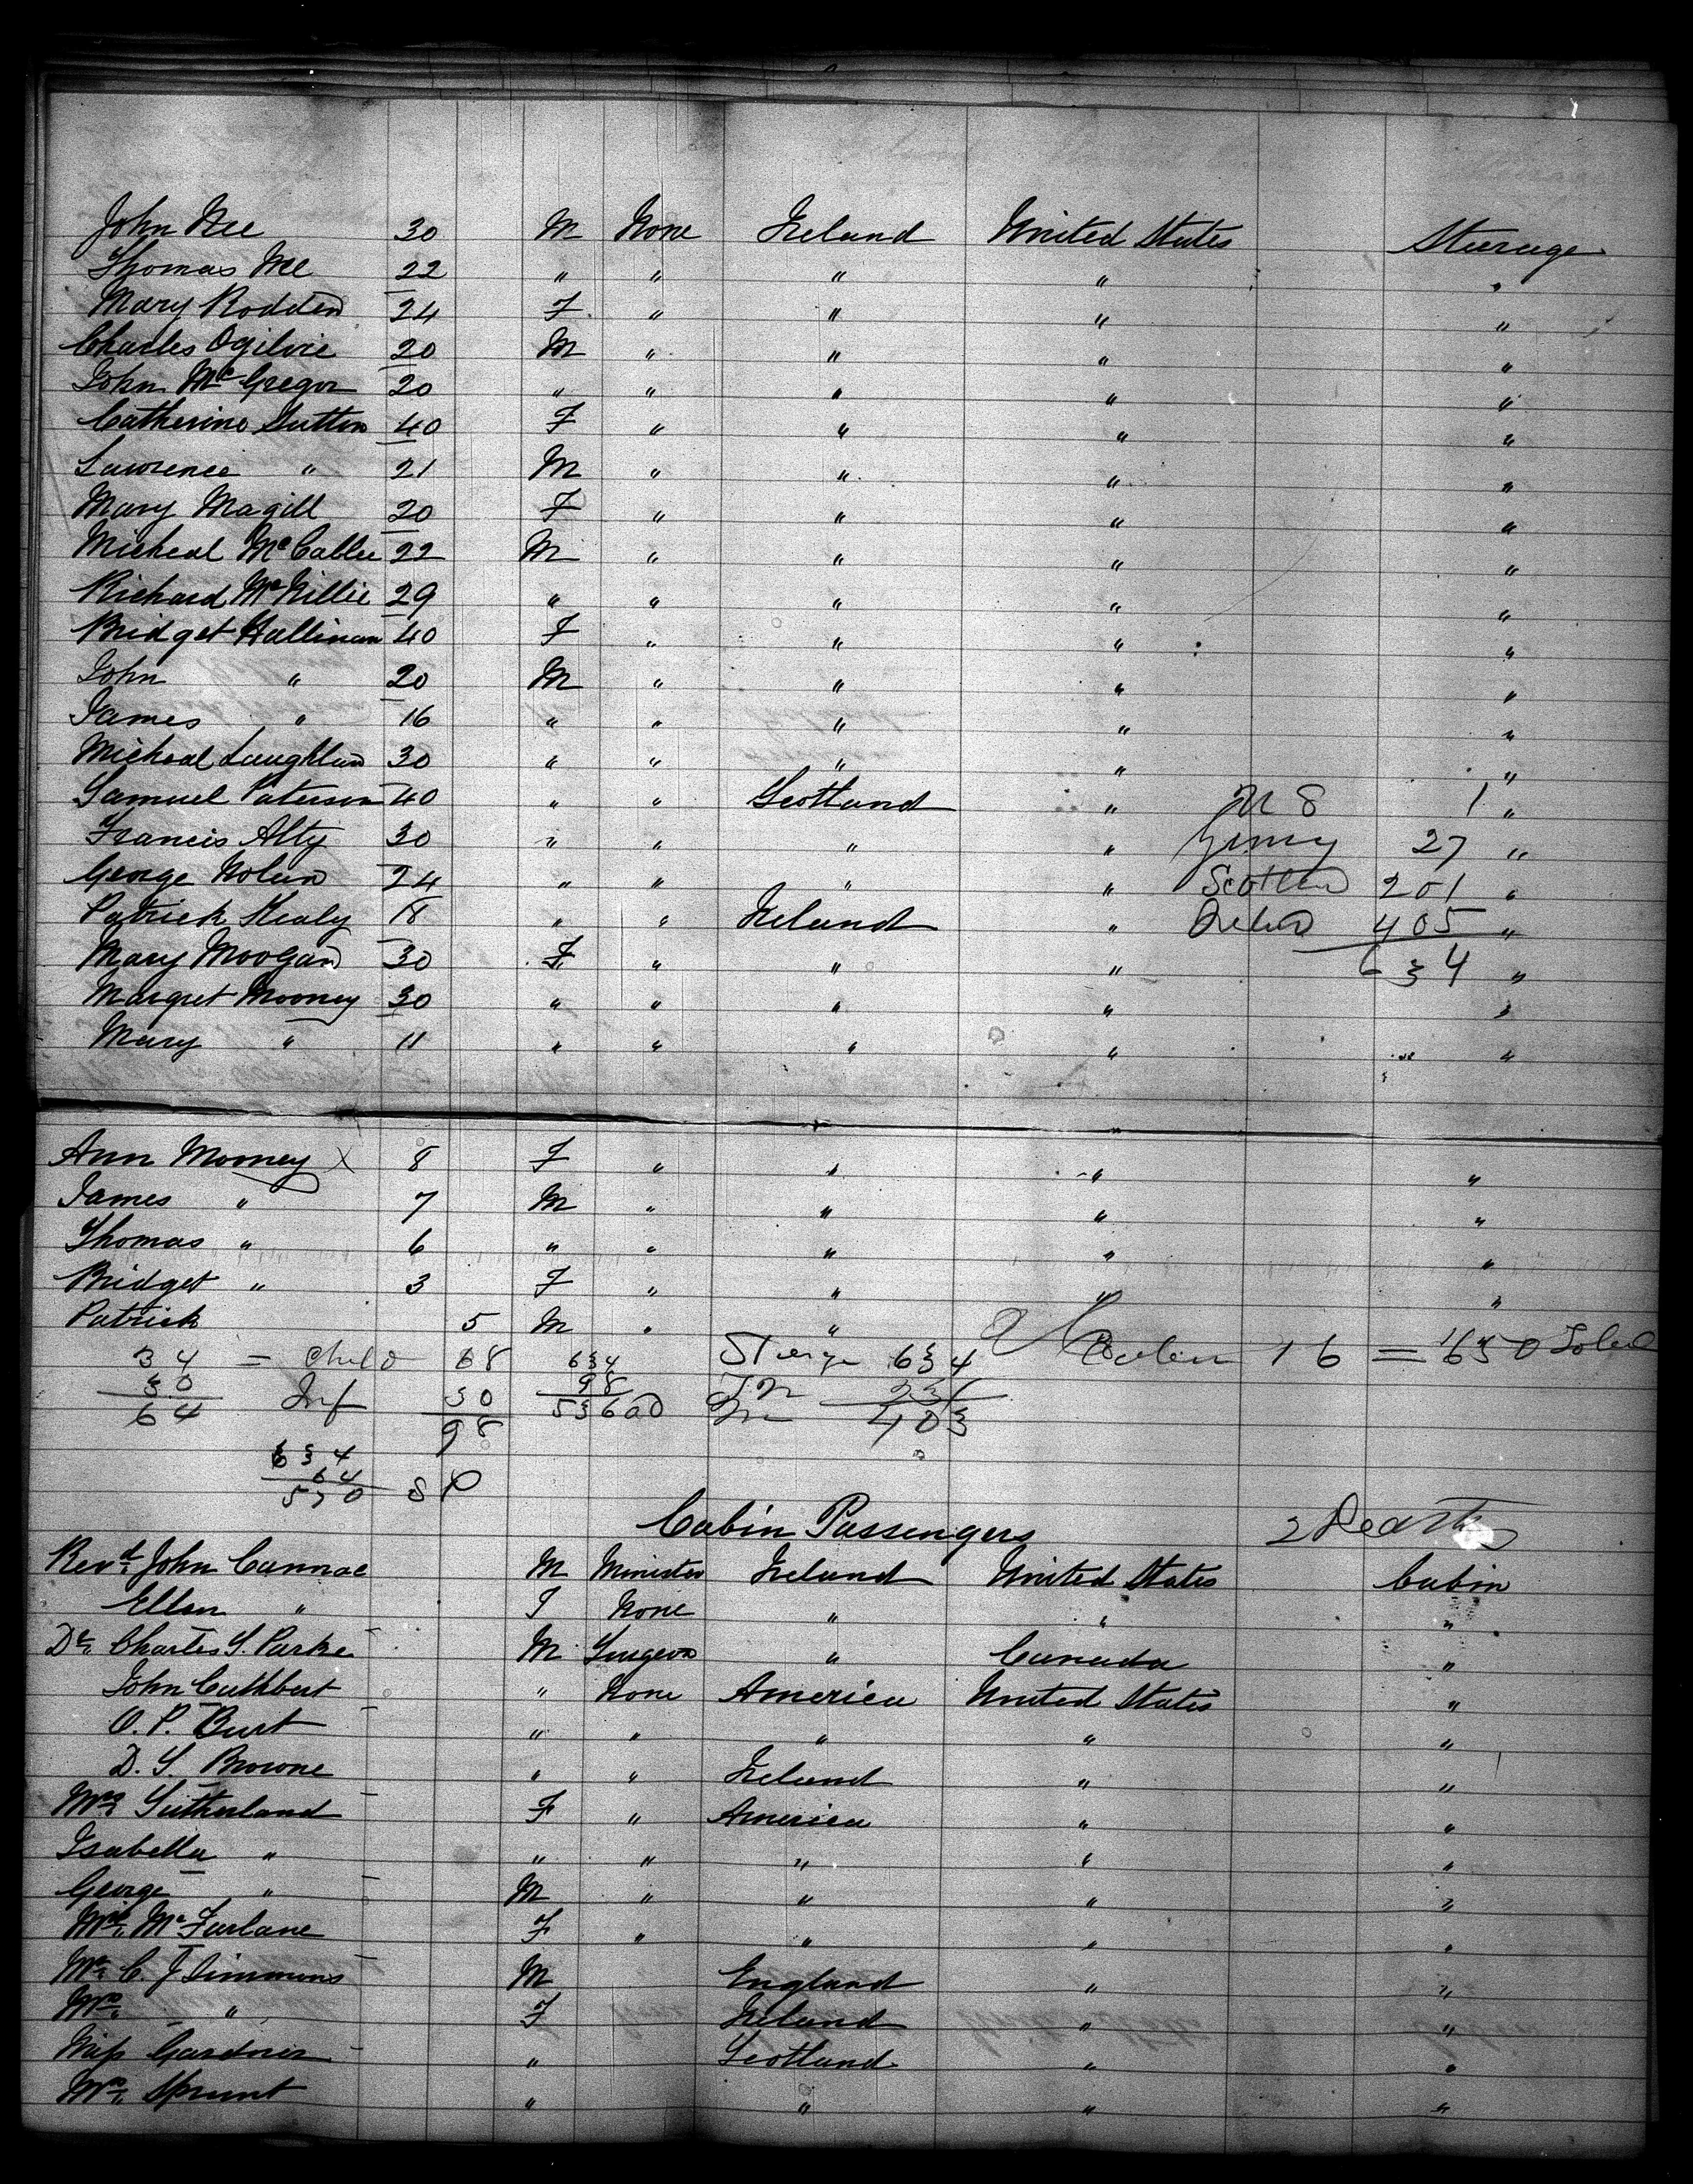 John Nee 30 M None Ireland United States Steerage
Thomas Nee 22 " " " " "
Mary Rodden 24 F " " " "
Charles Ogilvie 20 M " " " "
John McGregor 20 " " " " "
Catherine Sutton 40 F " " " "
Lawrence " 21 M " " " "
Mary Magill 20 F " " " "
Micheal 22 M " " " "
Richard 29 " " " " "
Bridget Hallinan 40 F " " " "
John " 20 M " " " "
James " 16 " " " " "
Micheal 30 " " " " "
Samuel Paterson 40 " " Scotland " U S 1 "
Francis Alty 30 " " " " Gerny 27 "
George Nolan 24 " " " " 201 "
Patrick Healy 18 " " Ireland " 405 "
Mary Moogan 30 F " " " 634 "
Margret Mooney 30 " " " " "
Mary " 11 " " " " "
Ann Mooney x 8 F " " " "
James " 7 M " " " "
Thomas " 6 " " " " "
Bridget " 3 F " " " "
Patrick 5 M " "
34 = Child 68 634 634 Cabin 16 = 650
30 Inf 30 98 231
64 98 536 403
634
64
570
Cabin Passengers 2 Deaths
Revd. John Cannac M Minister Ireland United States Cabin
Ellen " F None " " "
Dr. Charles S. Parke M Surgeon " Canada "
John Cuthbert " None America United States "
O. P. Burt " " " " "
D. S. Browne " " Ireland " "
Mrs Sutherland F " America " "
Isabella " " " " " "
George " M " " " "
McFarlane F " " " "
Mr. C. J Simmons M England " "
Mrs. " F Ireland " "
Miss Gardner " Scotland " "
Mrs. Sprunt " " " "